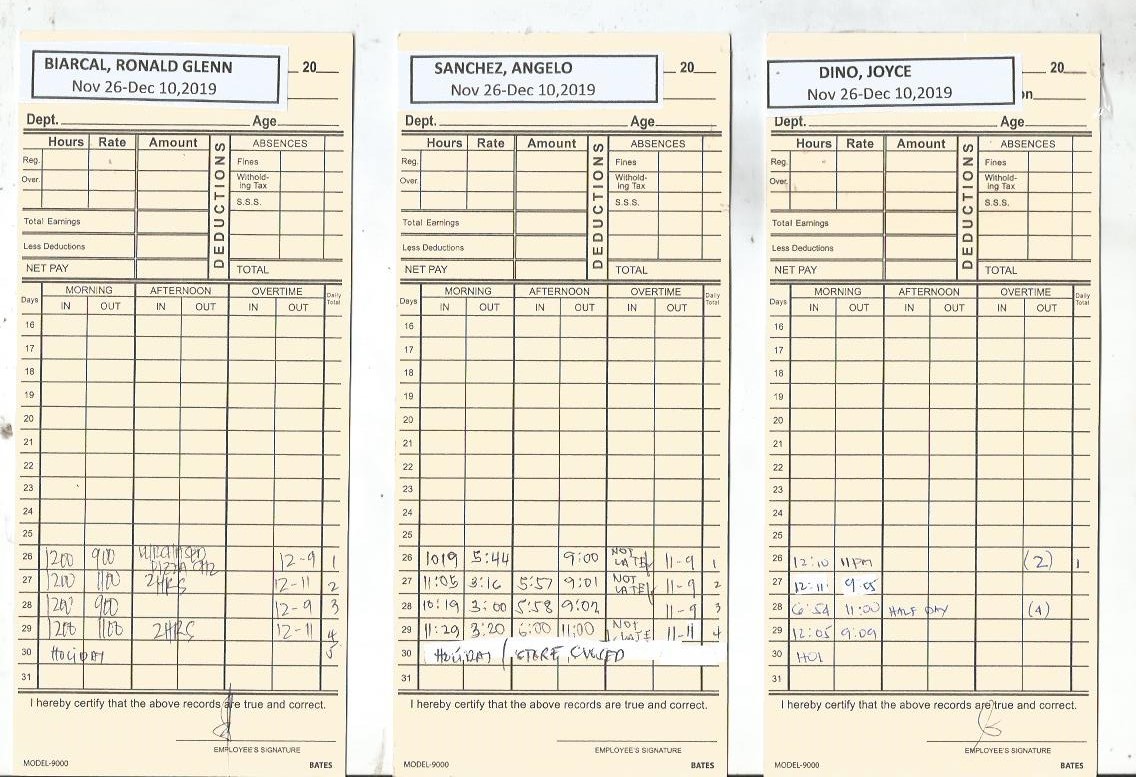 BIARCAL, RONALD GLENN
Nov 26-Dec 10,2019
20
Dept. Age
Hours Rate Amount DEDUCTIONS ABSENCES
Reg. Fines
Over. Withold-
ing Tax
S.S.S.
Total Earnings
Less Deductions
NET PAY TOTAL
Days MORNING AFTERNOON OVERTIME Daily Total
IN OUT IN OUT IN OUT
16
17
18
19
20
21
22
23
24
25
26 1200 900 12-9 1
27 1200 1100 2HRS 12-11 2
28 1200 900 12-9 3
29 1200 1100 2HRS 12-11 4
30 HOLIDAY 5
31
I hereby certify that the above records are true and correct.
EMPLOYEE'S SIGNATURE
MODEL-9000 BATES
SANCHEZ, ANGELO
Nov 26-Dec 10,2019
20
Dept. Age
Hours Rate Amount DEDUCTIONS ABSENCES
Reg. Fines
Over. Withold-
ing Tax
S.S.S.
Total Earnings
Less Deductions
NET PAY TOTAL
Days MORNING AFTERNOON OVERTIME Daily Total
IN OUT IN OUT IN OUT
16
17
18
19
20
21
22
23
24
25
26 1019 5:44 9:00 NOT LATE 11-9 1
27 11:05 3:16 5:57 9:01 NOT LATE 11-9 2
28 10:19 3:00 5:58 9:02 11-9 3
29 11:29 3:20 6:00 11:00 NOT LATE 11-11 4
30 HOLIDAY / STORE CLOSED
31
I hereby certify that the above records are true and correct.
EMPLOYEE'S SIGNATURE
MODEL-9000 BATES
DINO, JOYCE
Nov 26-Dec 10,2019
20
Dept. Age
Hours Rate Amount DEDUCTIONS ABSENCES
Reg. Fines
Over. Withold-
ing Tax
S.S.S.
Total Earnings
Less Deductions
NET PAY TOTAL
Days MORNING AFTERNOON OVERTIME Daily Total
IN OUT IN OUT IN OUT
16
17
18
19
20
21
22
23
24
25
26 12:10 11PM (2) 1
27 12:11 9:05
28 6:54 11:00 HALF DAY (4)
29 12:05 9:09
30 HOL
31
I hereby certify that the above records are true and correct.
EMPLOYEE'S SIGNATURE
MODEL-9000 BATES